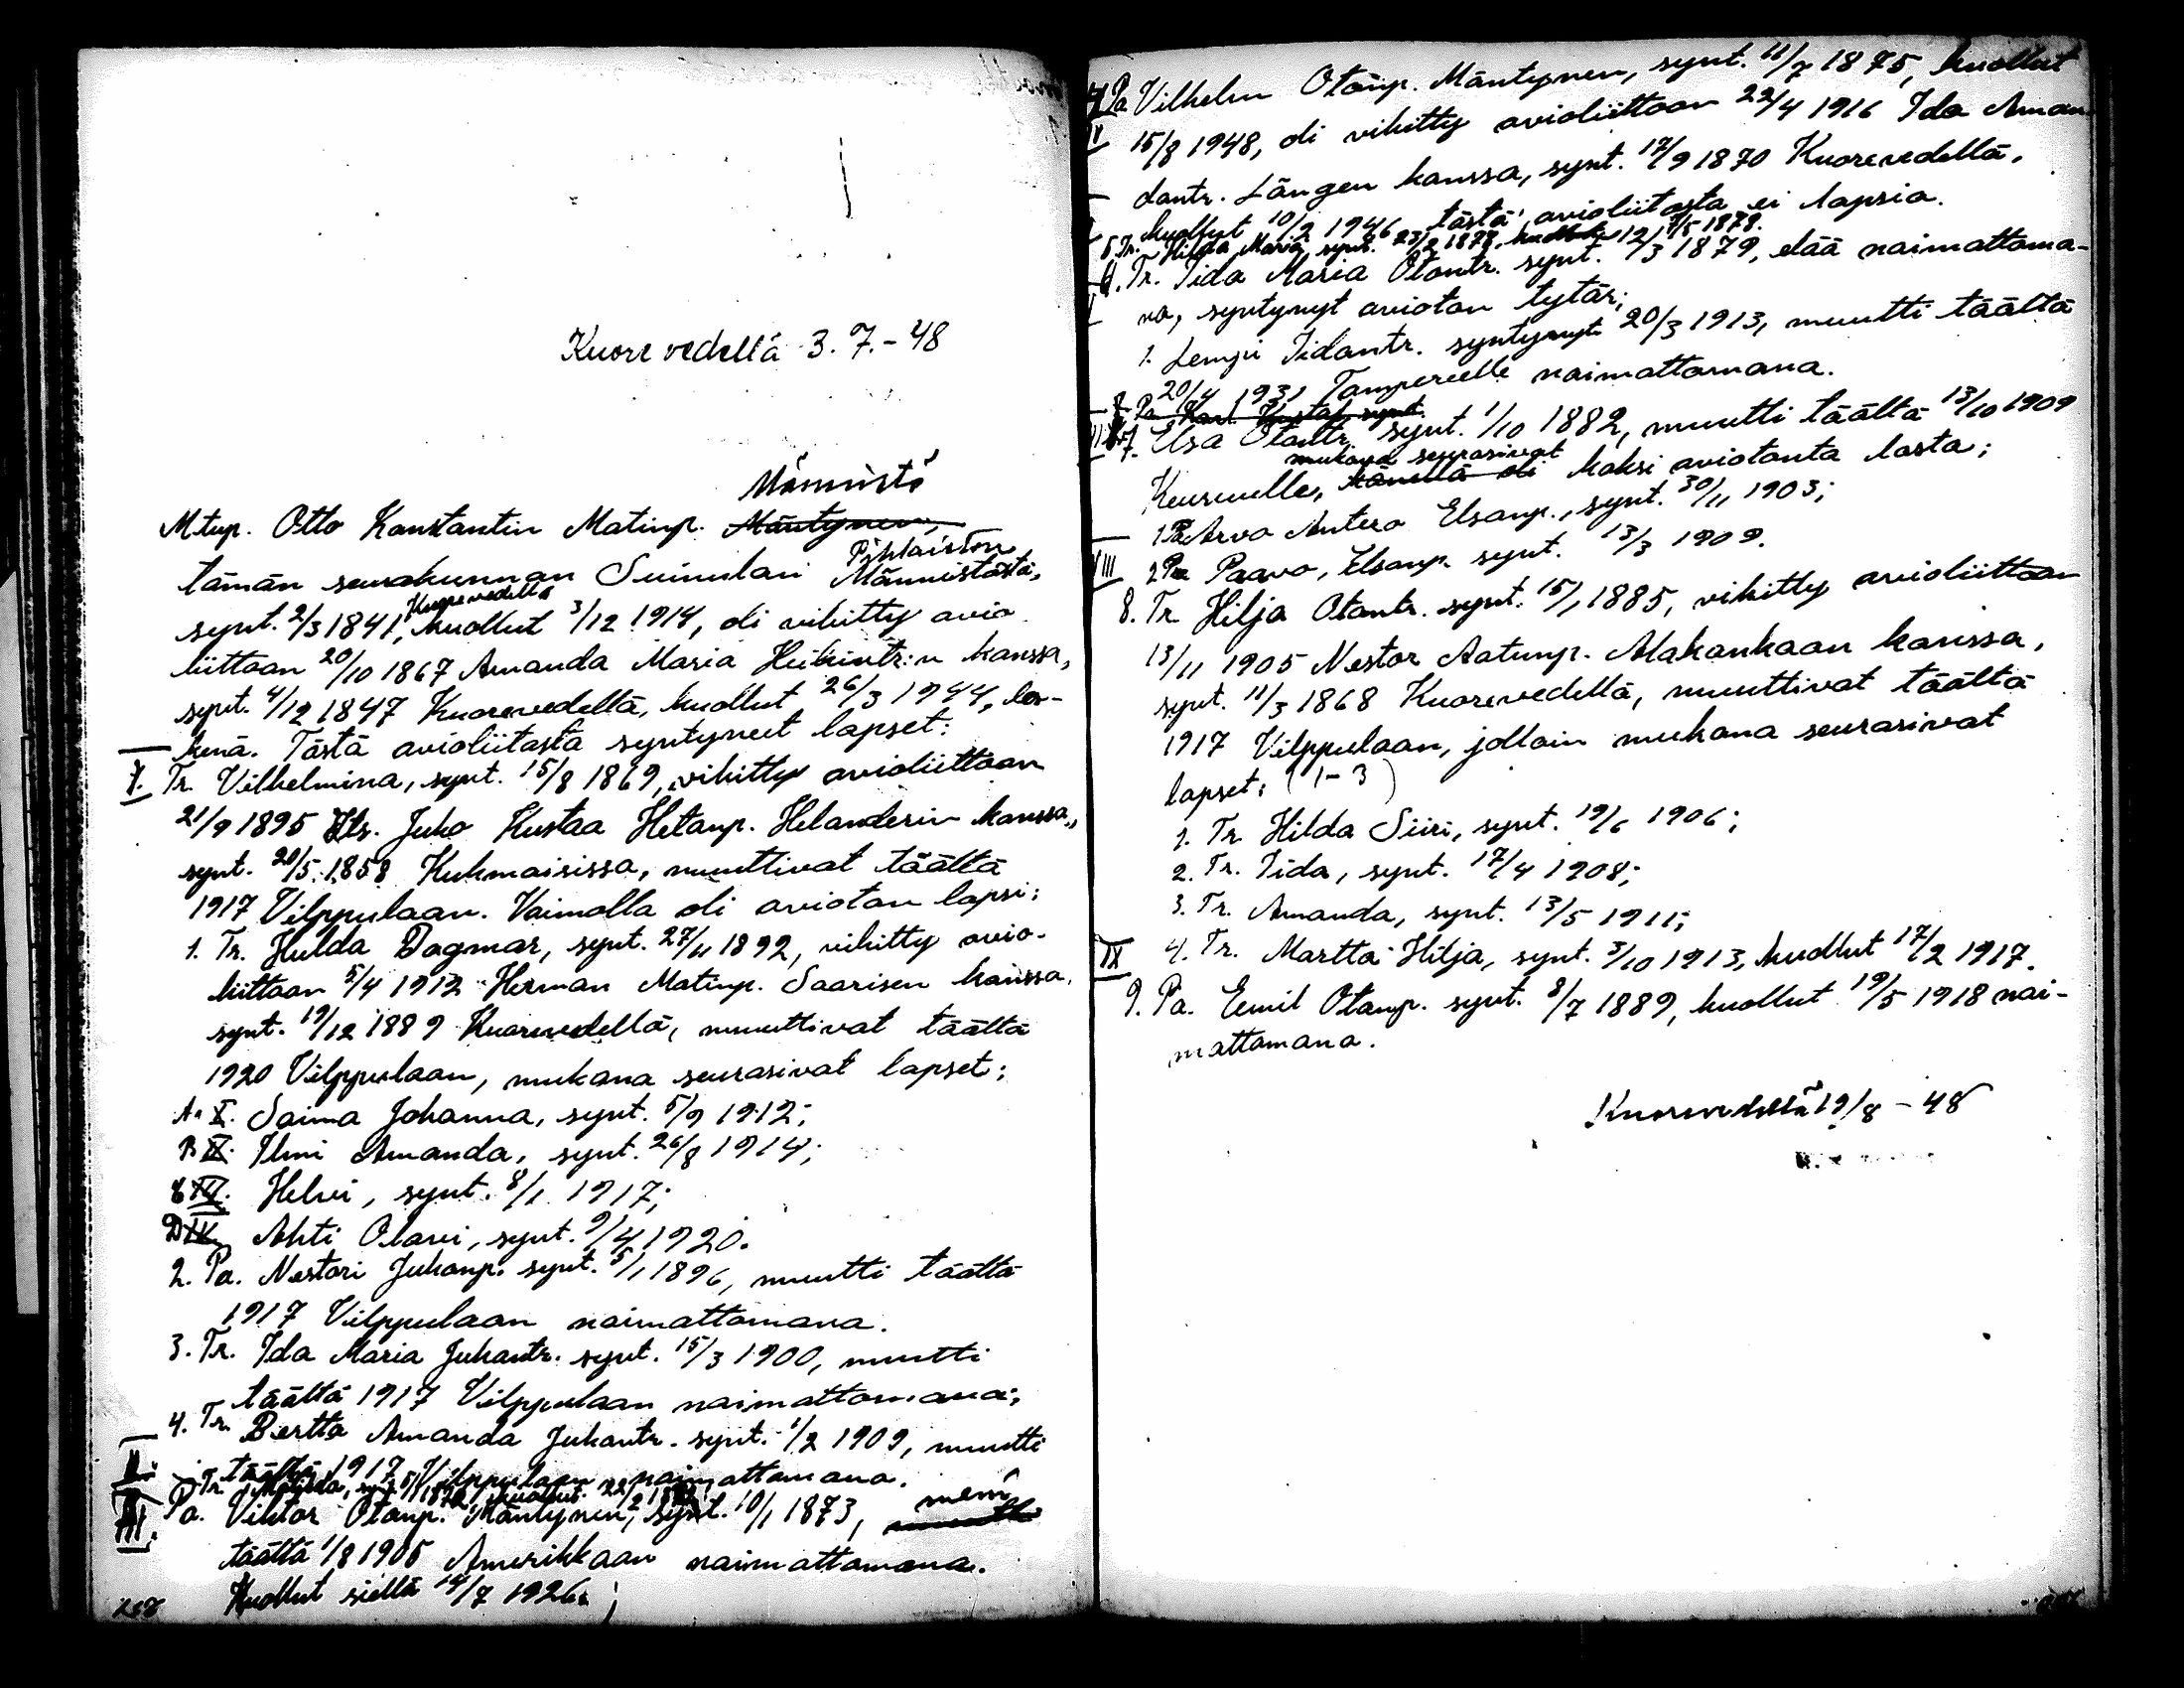 Kuorevedellä 3.7.-48
Männistö
Mtup. Otto Konstantin Matinp. Mäntynen,
Pihlaiston
tämän seurakunnan Suinulan Männistöstä,
Kuorevedellä
synt. 2/3 1841, kuollut 3/12 1914, oli vihitty avio
liittoon 20/10 1867 Amanda Maria Heikintr:n kanssa,
synt. 4/12 1847 Kuorevedellä, kuollut 26/3 1944, les-
kenä. Tästä avioliitosta syntyneet lapset:
I. Tr. Vilhelmina, synt. 15/8 1869, vihitty avioliittoon
21/9 1895 Its. Juho Kustaa Hetanp. Helanderin kanssa,
synt. 20/5 1858 Kuhmoisissa, muuttivat täältä
1917 Vilppulaan. Vaimolla oli avioton lapsi:
1. Tr. Hulda Dagmar, synt. 27/11 1892, vihitty avio-
liittoon 5/4 1912 Herman Matinp. Saarisen kanssa,
synt. 19/12 1889 Kuorevedellä, muuttivat täältä
1920 Vilppulaan, mukana seurasivat lapset:
A. I. Saima Johanna, synt. 5/9 1912;
B II. Ilmi Amanda, synt. 26/8 1914;
C III. Helvi, synt. 8/1 1917;
D IV. Ahti Olavi, synt. 9/4 1920.
2. Pa. Nestori Juhonp. synt. 5/1 1896, muutti täältä
1917 Vilppulaan naimattomana.
3. Tr. Ida Maria Juhontr. synt. 15/3 1900, muutti
täältä 1917 Vilppulaan naimattomana;
4. Tr. Bertta Amanda Juhontr. synt. 1/2 1909, muutti
täältä 1917 Vilppulaan naimattomana.
II. Tr. Matilda, synt.
meni
III. Pa. Viktor Otonp. Mäntynen, synt. 10/1 1873, muutti
täältä 1/8 1905 Amerikkaan naimattomana.
Kuollut siellä 14/7 1926.
258
Pa Vilhelm Otonp. Mäntynen, synt. 11/7 1875, kuollut
IV 15/8 1948, oli vihitty avioliittoon 22/4 1916 Ida Aman
dantr. Längen kanssa, synt. 17/9 1870 Kuorevedellä,
kuollut 10/2 1946, tästä avioliitosta ei lapsia.
5. Tr. Hilda Maria, synt. 23/2 1878, kuollut 12/5 1878.
6. Tr. Iida Maria Otontr. synt. 1/3 1879, elää naimattoma-
na, syntynyt avioton tytär;
1. Lempi Iidantr. syntynyt 20/3 1913, muutti täältä
20/4 1931 Tampereelle naimattomana.
7. Pa Karl Kustaf, synt.
7. Elsa Otontr. synt. 1/10 1882, muutti täältä 13/10 1909
mukana seurasivat
Keuruulle, hänellä oli kaksi aviotonta lasta;
1 Pa Arvo Antero Elsanp., synt. 30/11 1903;
VIII 2 Pa Paavo, Elsanp. synt. 13/3 1909.
8. Tr. Hilja Otontr. synt. 15/1 1885, vihitty avioliittoon
13/11 1905 Nestor Aatunp. Alakankaan kanssa,
synt. 11/3 1868 Kuorevedellä, muuttivat täältä
1917 Vilppulaan, jolloin mukana seurasivat
lapset: (1-3)
1. Tr. Hilda Siiri, synt. 19/6 1906;
2. Tr. Iida, synt. 17/4 1908;
3. Tr. Amanda, synt. 13/5 1911;
IX 4. Tr. Martta Hilja, synt. 3/10 1913, kuollut 17/2 1917.
9. Pa. Eemil Otonp. synt. 8/7 1889, kuollut 19/5 1918 nai-
mattomana.
Kuorevedellä 19/8 -48